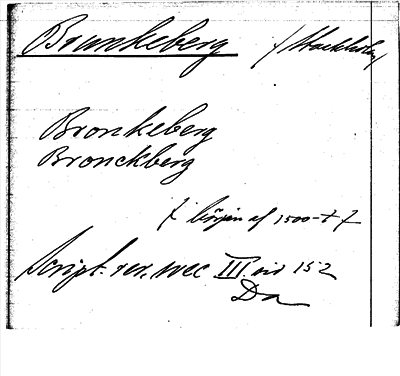 Brunkeberg / Stockholm /
Bronkeberg
Bronckberg
/ början af 1500-t /
Script. rer. svec III. sid 152
Da